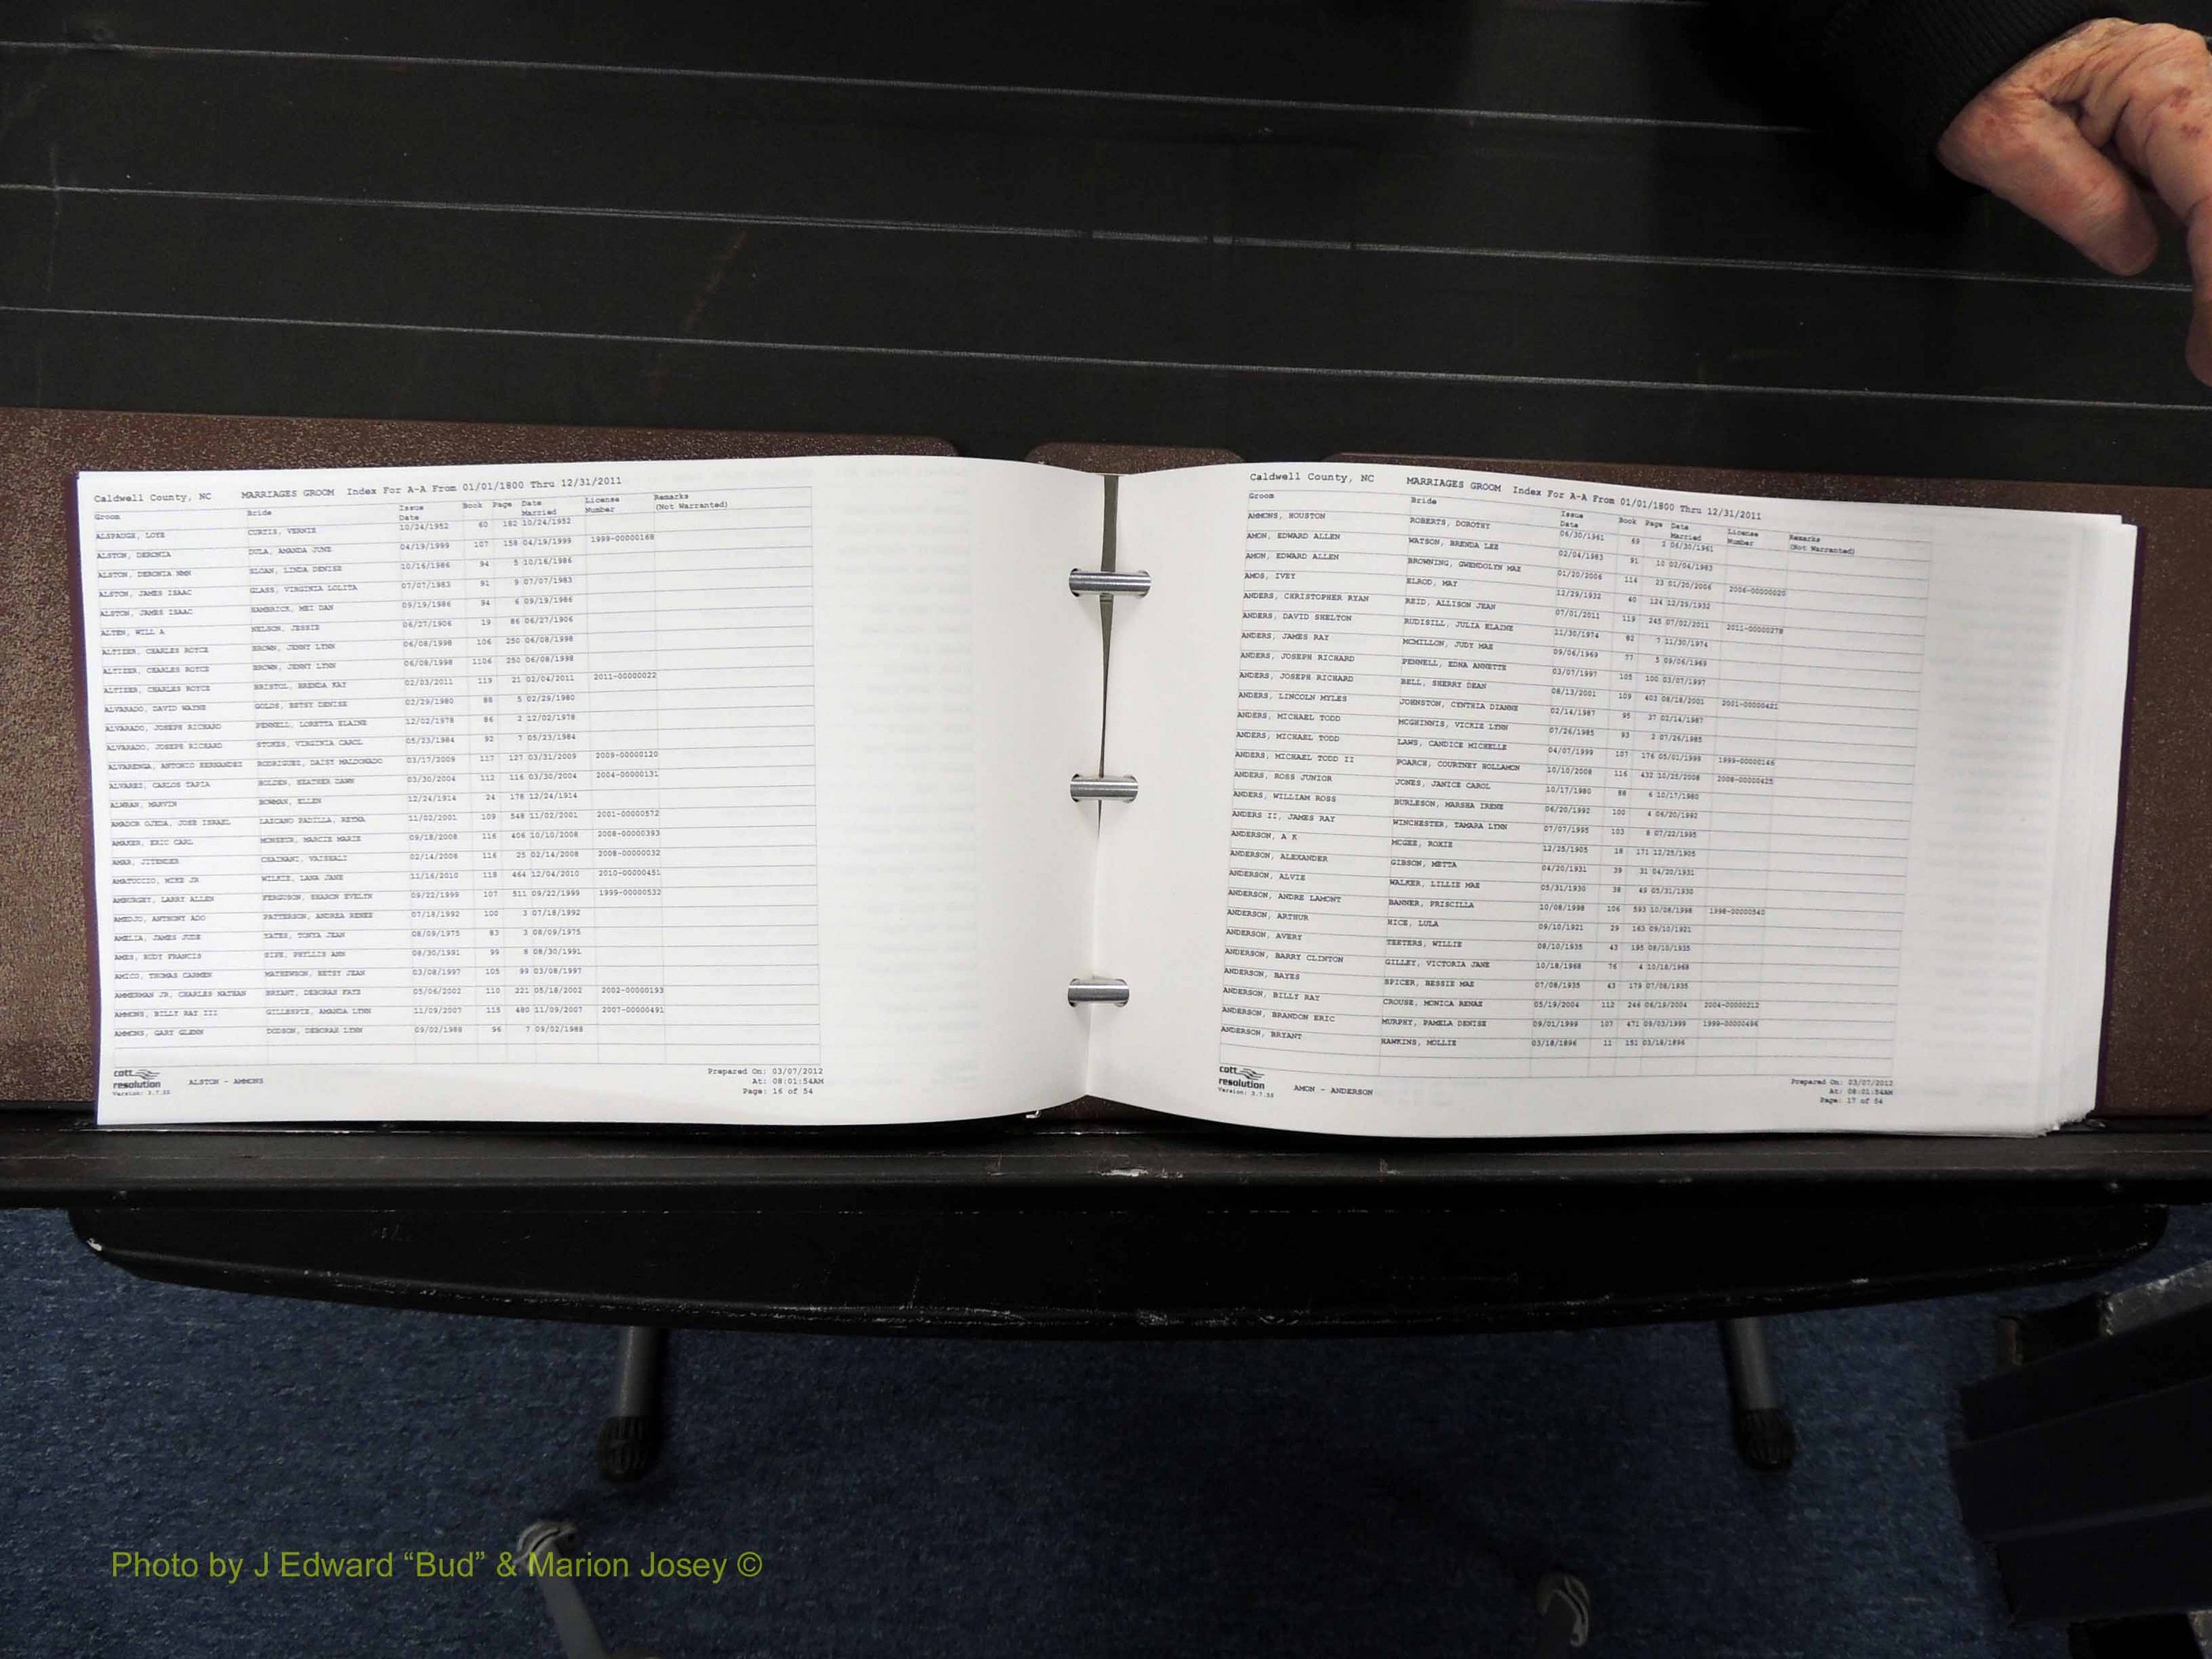 Caldwell County, NC MARRIAGES GROOM Index For A-A From 01/01/1800 Thru 12/31/2011
Groom Bride Issue Date Book Page Date Married License Number Remarks (Not Warranted)
ALSPAUGE, LOYE CURTIS, VERNIE 10/24/1952 60 182 10/24/1952
ALSTON, DERONIA DULA, AMANDA JUNE 04/19/1999 107 158 04/19/1999 1999-00000168
ALSTON, DERONIA NMN SLOAN, LINDA DENISE 10/16/1986 94 5 10/16/1986
ALSTON, JAMES ISAAC GLASS, VIRGINIA LOLITA 07/07/1983 91 9 07/07/1983
ALSTON, JAMES ISAAC HAMBRICK, MEI DAN 09/19/1986 94 6 09/19/1986
ALTEN, WILL A NELSON, JESSIE 06/27/1906 19 86 06/27/1906
ALTIZER, CHARLES ROYCE BROWN, JENNY LYNN 06/08/1998 106 250 06/08/1998
ALTIZER, CHARLES ROYCE BROWN, JENNY LYNN 06/08/1998 1106 250 06/08/1998
ALTIZER, CHARLES ROYCE BRISTOL, BRENDA KAY 02/03/2011 119 21 02/04/2011 2011-00000022
ALVARADO, DAVID WAYNE GOLDS, BETSY DENISE 02/29/1980 88 5 02/29/1980
ALVARADO, JOSEPH RICHARD PENNELL, LORETTA ELAINE 12/02/1978 86 2 12/02/1978
ALVARADO, JOSEPH RICHARD STOKES, VIRGINIA CAROL 05/23/1984 92 7 05/23/1984
ALVARENGA, ANTONIO HERNANDEZ RODRIGUEZ, DAISY MALDONADO 03/17/2009 117 127 03/31/2009 2009-00000120
ALVAREZ, CARLOS TAPIA HOLDEN, HEATHER DAWN 03/30/2004 112 116 03/30/2004 2004-00000131
ALWRAN, MARVIN BOWMAN, ELLEN 12/24/1914 24 178 12/24/1914
AMADOR OJEDA, JOSE ISRAEL LAZCANO PADILLA, REYNA 11/02/2001 109 548 11/02/2001 2001-00000572
AMAKER, ERIC CARL MONSEUR, MARCIE MARIE 09/18/2008 116 406 10/10/2008 2008-00000393
AMAR, JITENDER VAISHALI 02/14/2008 116 25 02/14/2008 2008-00000032
AMATUCCIO, MIKE JR WILKIE, LANA JANE 11/16/2010 118 464 12/04/2010 2010-00000451
AMBURGEY, LARRY ALLEN FERGUSON, SHARON EVELYN 09/22/1999 107 511 09/22/1999 1999-00000532
AMEDJO, ANTHONY ADO PATTERSON, ANDREA RENEE 07/18/1992 100 3 07/18/1992
AMELIA, JAMES JUDE YATES, TONYA JEAN 08/09/1975 83 3 08/09/1975
AMES, RUDY FRANCIS SIPE, PHYLLIS ANN 08/30/1991 99 8 08/30/1991
AMICO, THOMAS CARMEN MATHEWSON, BETSY JEAN 03/08/1997 105 99 03/08/1997
AMMERMAN JR, CHARLES NATHAN BRYANT, DEBORAH FAYE 05/06/2002 110 221 05/18/2002 2002-00000193
AMMONS, BILLY RAY III GILLESPIE, AMANDA LYNN 11/09/2007 115 480 11/09/2007 2007-00000491
AMMONS, GARY GLENN DODSON, DEBORAH LYNN 09/02/1988 96 7 09/02/1988
cott resolution Version: 3.7.33 ALSTON - AMMONS
Prepared On: 03/07/2012
At: 08:01:54AM
Page: 16 of 54
Caldwell County, NC MARRIAGES GROOM Index For A-A From 01/01/1800 Thru 12/31/2011
Groom Bride Issue Date Book Page Date Married License Number Remarks (Not Warranted)
AMMONS, HOUSTON ROBERTS, DOROTHY 06/30/1961 69 1 06/30/1961
AMON, EDWARD ALLEN WATSON, BRENDA LEE 02/04/1983 91 10 02/04/1983
AMON, EDWARD ALLEN BROWNING, GWENDOLYN MAE 01/20/2006 114 23 01/20/2006 2006-00000020
AMOS, IVEY ELROD, MAY 12/29/1932 40 124 12/29/1932
ANDERS, CHRISTOPHER RYAN REID, ALLISON JEAN 07/01/2011 119 245 07/02/2011 2011-00000278
ANDERS, DAVID SHELTON RUDISILL, JULIA ELAINE 11/30/1974 82 7 11/30/1974
ANDERS, JAMES RAY MCMILLON, JUDY MAE 09/06/1969 77 5 09/06/1969
ANDERS, JOSEPH RICHARD PENNELL, EDNA ANNETTE 03/07/1997 105 100 03/07/1997
ANDERS, JOSEPH RICHARD BELL, SHERRY DEAN 08/13/2001 109 403 08/18/2001 2001-00000421
ANDERS, LINCOLN MYLES JOHNSTON, CYNTHIA DIANNE 02/14/1987 95 37 02/14/1987
ANDERS, MICHAEL TODD MCGHINNIS, VICKIE LYNN 07/26/1985 93 2 07/26/1985
ANDERS, MICHAEL TODD LAWS, CANDICE MICHELLE 04/07/1999 107 176 05/01/1999 1999-00000146
ANDERS, MICHAEL TODD II POARCH, COURTNEY HOLLAMON 10/10/2008 116 432 10/25/2008 2008-00000425
ANDERS, ROSS JUNIOR JONES, JANICE CAROL 10/17/1980 88 6 10/17/1980
ANDERS, WILLIAM ROSS BURLESON, MARSHA IRENE 06/20/1992 100 4 06/20/1992
ANDERS II, JAMES RAY WINCHESTER, TAMARA LYNN 07/07/1995 103 8 07/22/1995
ANDERSON, A K MCGEE, ROXIE 12/25/1905 18 171 12/25/1905
ANDERSON, ALEXANDER GIBSON, METTA 04/20/1931 39 31 04/20/1931
ANDERSON, ALVIE WALKER, LILLIE MAE 05/31/1930 38 49 05/31/1930
ANDERSON, ANDRE LAMONT BANNER, PRISCILLA 10/08/1998 106 593 10/08/1998 1998-00000540
ANDERSON, ARTHUR HICE, LULA 09/10/1921 29 163 09/10/1921
ANDERSON, AVERY TEETERS, WILLIE 08/10/1935 43 195 08/10/1935
ANDERSON, BARRY CLINTON GILLEY, VICTORIA JANE 10/18/1968 76 4 10/18/1968
ANDERSON, BAYES SPICER, BESSIE MAE 07/08/1935 43 179 07/08/1935
ANDERSON, BILLY RAY CROUSE, MONICA RENAE 05/19/2004 112 246 06/19/2004 2004-00000212
ANDERSON, BRANDON ERIC MURPHY, PAMELA DENISE 09/01/1999 107 471 09/03/1999 1999-00000496
ANDERSON, BRYANT HAWKINS, MOLLIE 03/18/1896 11 151 03/18/1896
cott resolution Version: 3.7.33 AMON - ANDERSON
Prepared On: 03/07/2012
At: 08:01:54AM
Page: 17 of 54
Photo by J Edward “Bud” & Marion Josey ©